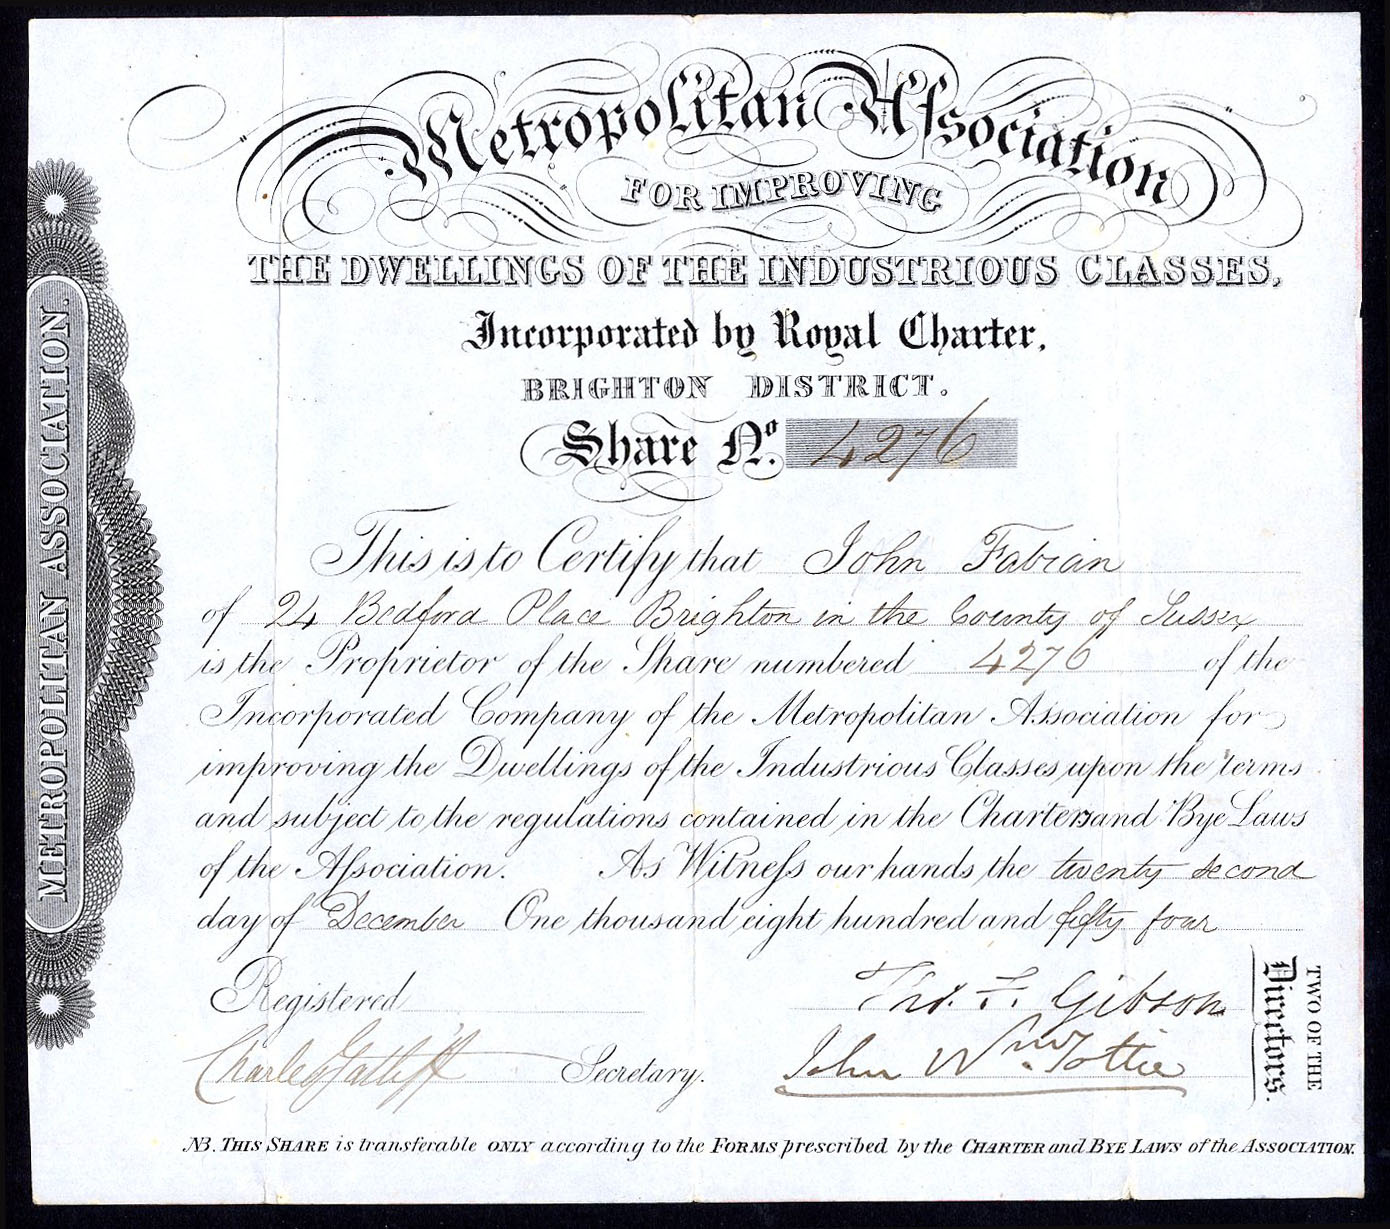 METROPOLITAN ASSOCIATION.
Metropolitan Aſsociation
FOR IMPROVING
THE DWELLINGS OF THE INDUSTRIOUS CLASSES,
Incorporated by Royal Charter,
BRIGHTON DISTRICT.
Share No. 4276
This is to Certify that John Fabian
of 24 Bedford Place Brighton in the County of Sussex
is the Proprietor of the Share numbered 4276 of the
Incorporated Company of the Metropolitan Association for
improving the Dwellings of the Industrious Classes upon the terms
and subject to the regulations contained in the Charters and Bye Laws
of the Aſsociation. As Witneſs our hands the twenty second
day of December One thousand eight hundred and fifty four
Registered
Thos. F. Gibson
Charles Gatliff Secretary.
John Wm. Tottie
TWO OF THE
Directors.
NB. THIS SHARE is transferable ONLY according to the FORMS prescribed by the CHARTER and BYE LAWS of the ASSOCIATION.